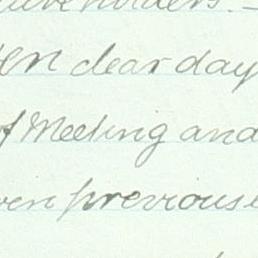 holders. -
ten clear day
of Meeting and
ven previous